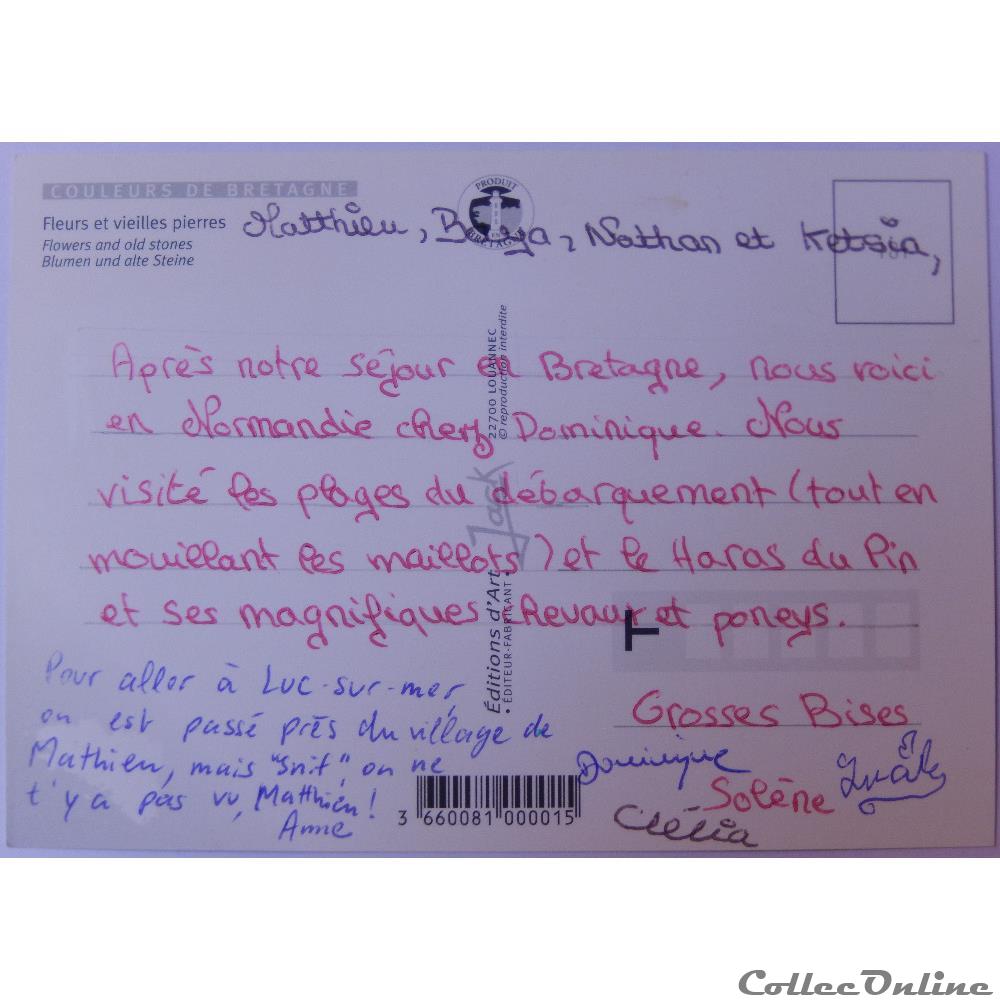 COULEURS DE BRETAGNE
Fleurs et vieilles pierres
Flowers and old stones
Blumen und alte Steine
PRODUIT EN BRETAGNE
Matthieu, Nathan et Ketsia,
22700 LOUANNEC
© reproduction interdite
Après notre séjour en Bretagne, nous voici
en Normandie chez Dominique. Nous
visité les plages du débarquement (tout en
mouillant les maillots) et le Haras du Pin
et ses magnifiques chevaux et poneys.
Jack
Éditions d'Art
• ÉDITEUR-FABRICANT •
T
Grosses Bises
Pour aller à Luc-sur-mer,
on est passé près du village de
Mathieu, mais "snif", on ne
t'y a pas vu, Matthieu!
Anne
Dominique
Solène
Clélia
3 660081 000015
CollecOnline